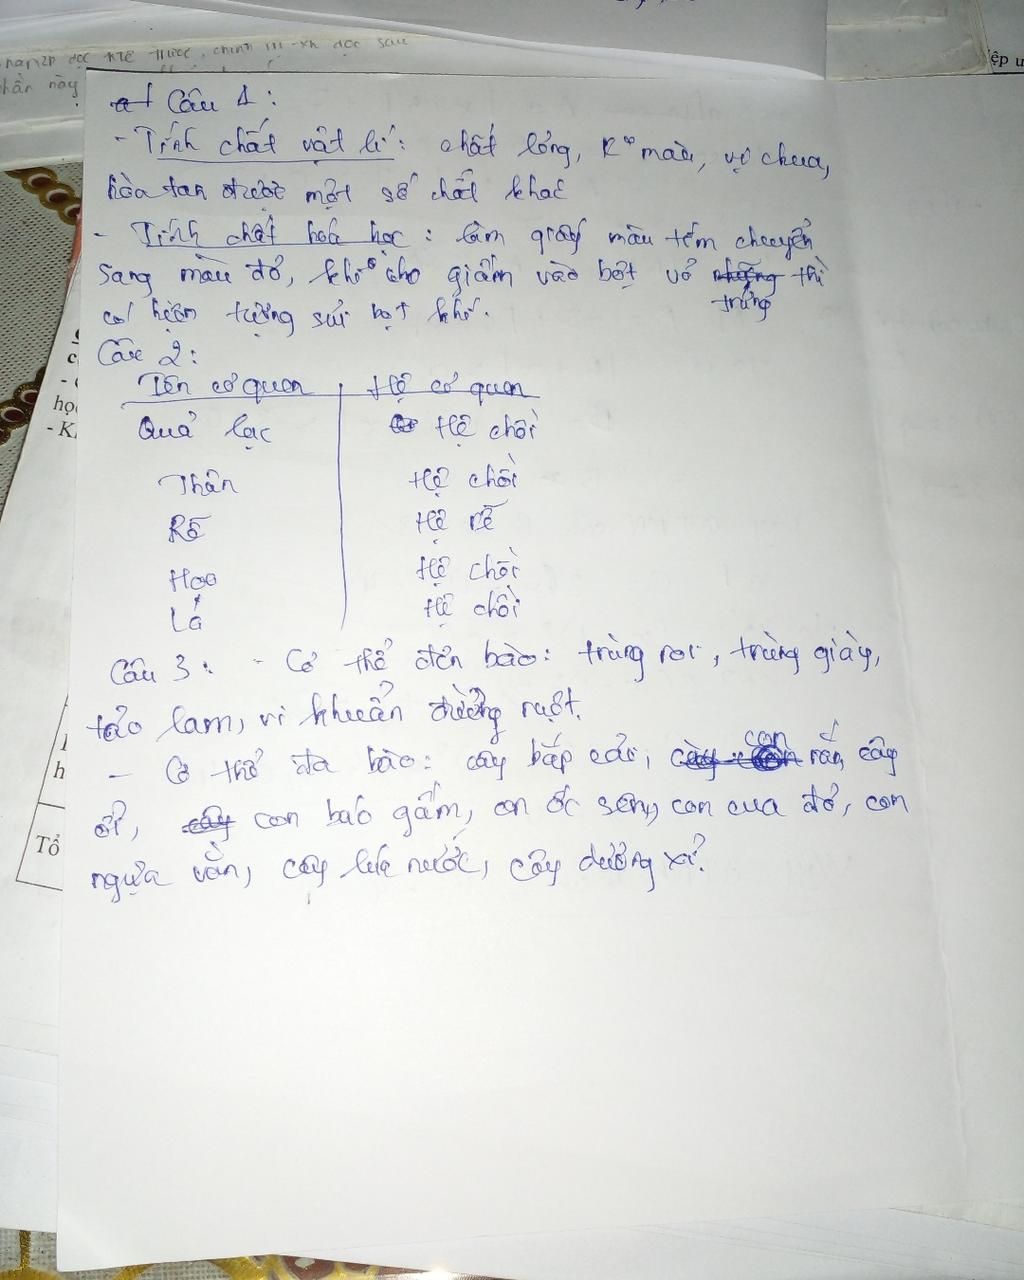 hần này
ệp ư
Câu 1:
- Tính chất vật lí: chất lỏng, Ko màu, vị chua,
hòa tan được một số chất khác
- Tính chất hoá học: làm giấy màu tím chuyển
sang màu đỏ, khi cho giấm vào bột vỏ trứng thì
có hiện tượng sủi bọt khí.
Câu 2:
Tên cơ quan Hệ cơ quan
Quả lạc Hệ chồi
Thân Hệ chồi
Rễ Hệ rễ
Hoa Hệ chồi
Lá Hệ chồi
Câu 3: - Cơ thể đơn bào: trùng roi, trùng giày,
tảo lam, vi khuẩn đường ruột.
- Cơ thể đa bào: cây bắp cải, con rắn, cây
ổi, con báo gấm, con ốc sên, con cua đỏ, con
ngựa vằn, cây lúa nước, cây dương xỉ.
học
- K
h
Tổ